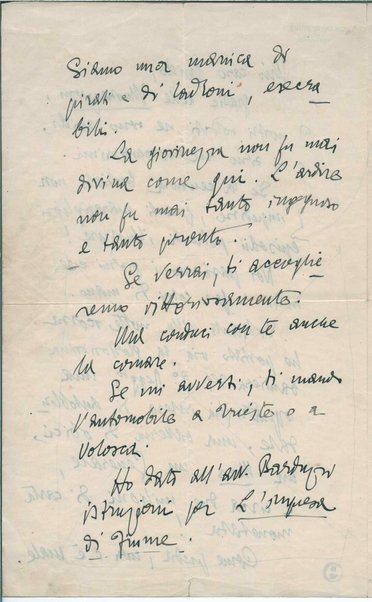 Siamo una manica di
pirati e di ladroni, execra
bili.
La giovinezza non fu mai
divina come qui. L'ardire
non fu mai tanto ingegnoso
e tanto pronto.
Se verrai, ti accoglie
remo vittoriosamente.
Ma conduci con te anche
la comare.
Se mi avverti, ti mando
l'automobile a Trieste o a
Volosca.
Ho dato all'avv. Barduzzi
istruzioni per L'impresa
di Fiume.